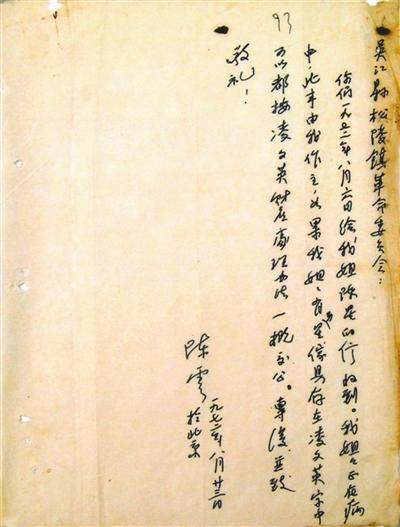 93
吴江县松陵镇革命委员会：
你们一九七二年八月六日给我姐陈星的信收到。我姐姐正在病
中，此事由我作主，如果我姐姐有些傢具存在凌文英家中
可以都按凌文英财产处理办法一概交公。专复并致
敬礼！
陈云
一九七二年八月廿三日
於北京